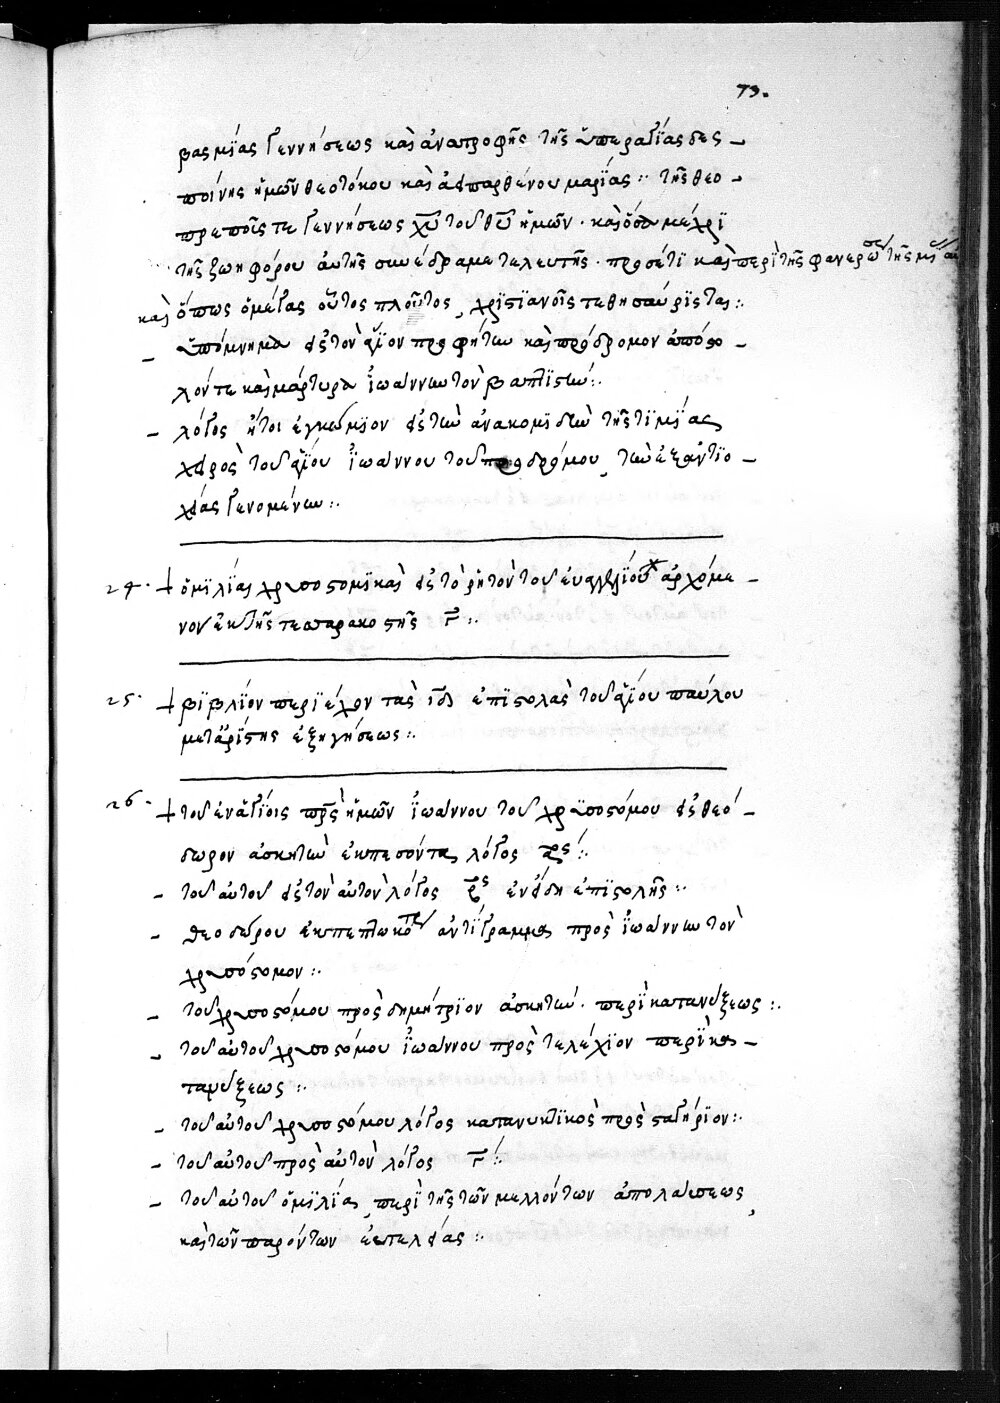 73.
βασμίας γεννήσεως καὶ ἀνατροφῆς τῆς ὑπεραγίας δεσ -
ποίνης ἡμῶν θεοτόκου καὶ ἀειπαρθένου μαρίας :· τῆς θεο -
πρεποῦς τε γεννήσεως χυ τοῦ θυ ἡμῶν · καὶ ὅσα μέχρι
τῆς ζωηφόρου αὐτῆς συνέδραμε τελευτῆς · προσέτι καὶ περὶ τῆς φανερώσεως τῆς
καὶ ὅπως ὁ μέγας οὗτος πλοῦτος, χριστιανοῖς τεθησαύρισται :·
- ὑπόμνημα εἰς τὸν ἅγιον προφήτην καὶ πρόδρομον ἀπόστο -
λόν τε καὶ μάρτυρα ἰωάννην τὸν βαπτιστήν :·
- λόγος ἤτοι ἐγκώμιον εἰς τὴν ἀνακομιδὴν τῆς τιμίας
χειρὸς τοῦ ἁγίου ἰωάννου τοῦ προδρόμου, τὴν ἐξ ἀντιο -
χείας γενομένην :·
24 · + ὁμιλίας χρυσοστομικὰς εἰς τὸ ῥητὸν τοῦ εὐαγγελίου ἀρχόμε -
νον ἐκ τῆς τεσσαρακοστῆς Γ :·
25 · + βιβλίον περιέχον τὰς ιδ ἐπιστολὰς τοῦ ἁγίου παύλου
μετ' ἀρίστης ἐξηγήσεως :·
26 · + τοῦ ἐν ἁγίοις πρς ἡμῶν ἰωάννου τοῦ χρυσοστόμου εἰς θεό -
δωρον ἀσκητὴν ἐκπεσόντα λόγος ας :·
- τοῦ αὐτοῦ εἰς τὸν αὐτὸν λόγος βς ἐν εἴδει ἐπιστολῆς :·
- θεοδώρου ἐκπεπτωκότος ἀντίγραμμα πρὸς ἰωάννην τὸν
χρυσόστομον :·
- τοῦ χρυσοστόμου πρὸς δημήτριον ἀσκητήν · περὶ κατανύξεως :·
- τοῦ αὐτοῦ χρυσοστόμου ἰωάννου πρὸς τελέχιον περὶ κα -
τανύξεως :·
- τοῦ αὐτοῦ χρυσοστόμου λόγος κατανυκτικὸς πρὸς σταγήριον :·
- τοῦ αὐτοῦ πρὸς αὐτὸν λόγος Γ :·
- τοῦ αὐτοῦ ὁμιλία, περὶ τῆς τῶν μελλόντων ἀπολαύσεως,
καὶ τῶν παρόντων εὐτελείας :·